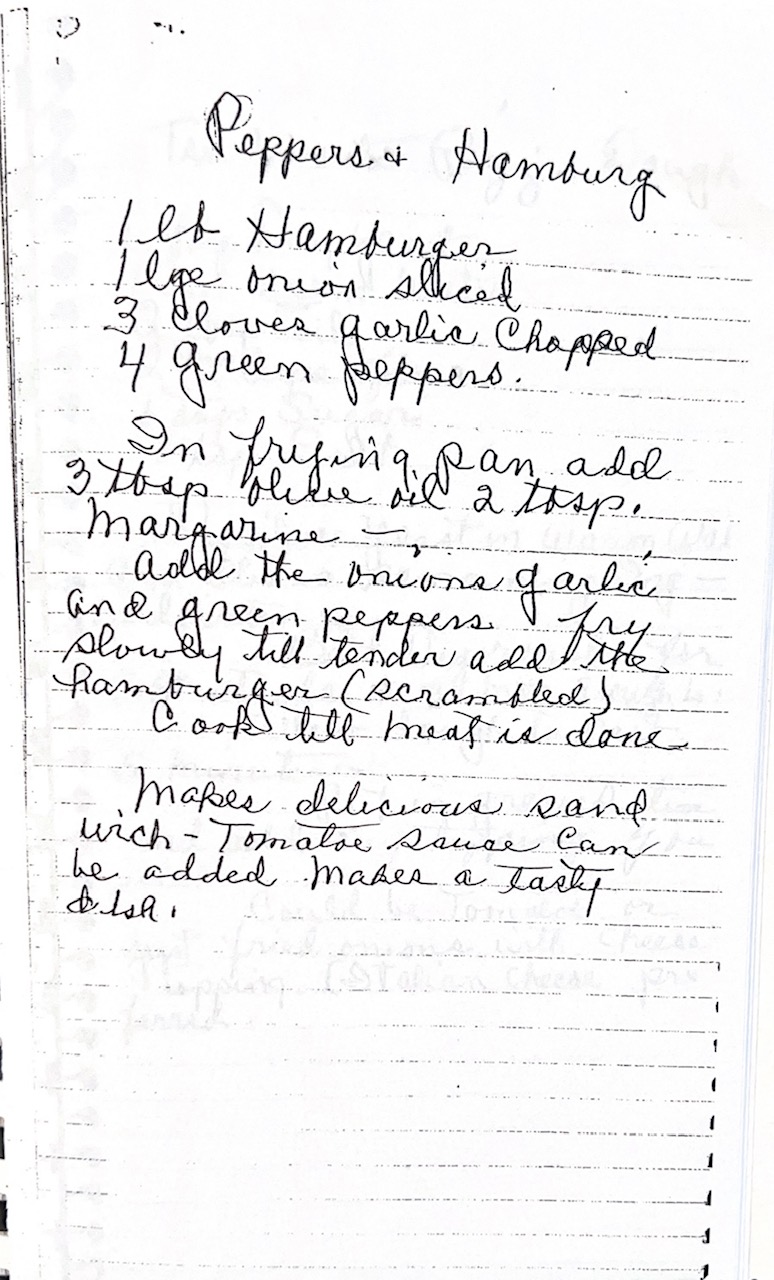 Peppers & Hamburg
1 lb Hamburger
1 lge onion sliced
3 cloves garlic Chopped
4 green peppers.
In frying pan add
3 tbsp olive oil 2 tbsp.
Margarine –
add the onions garlic
and green peppers fry
slowly till tender add the
hamburger (scrambled)
Cook till meat is done
Makes delicious sand
wich - Tomatoe sauce Can
be added Makes a tasty
dish.